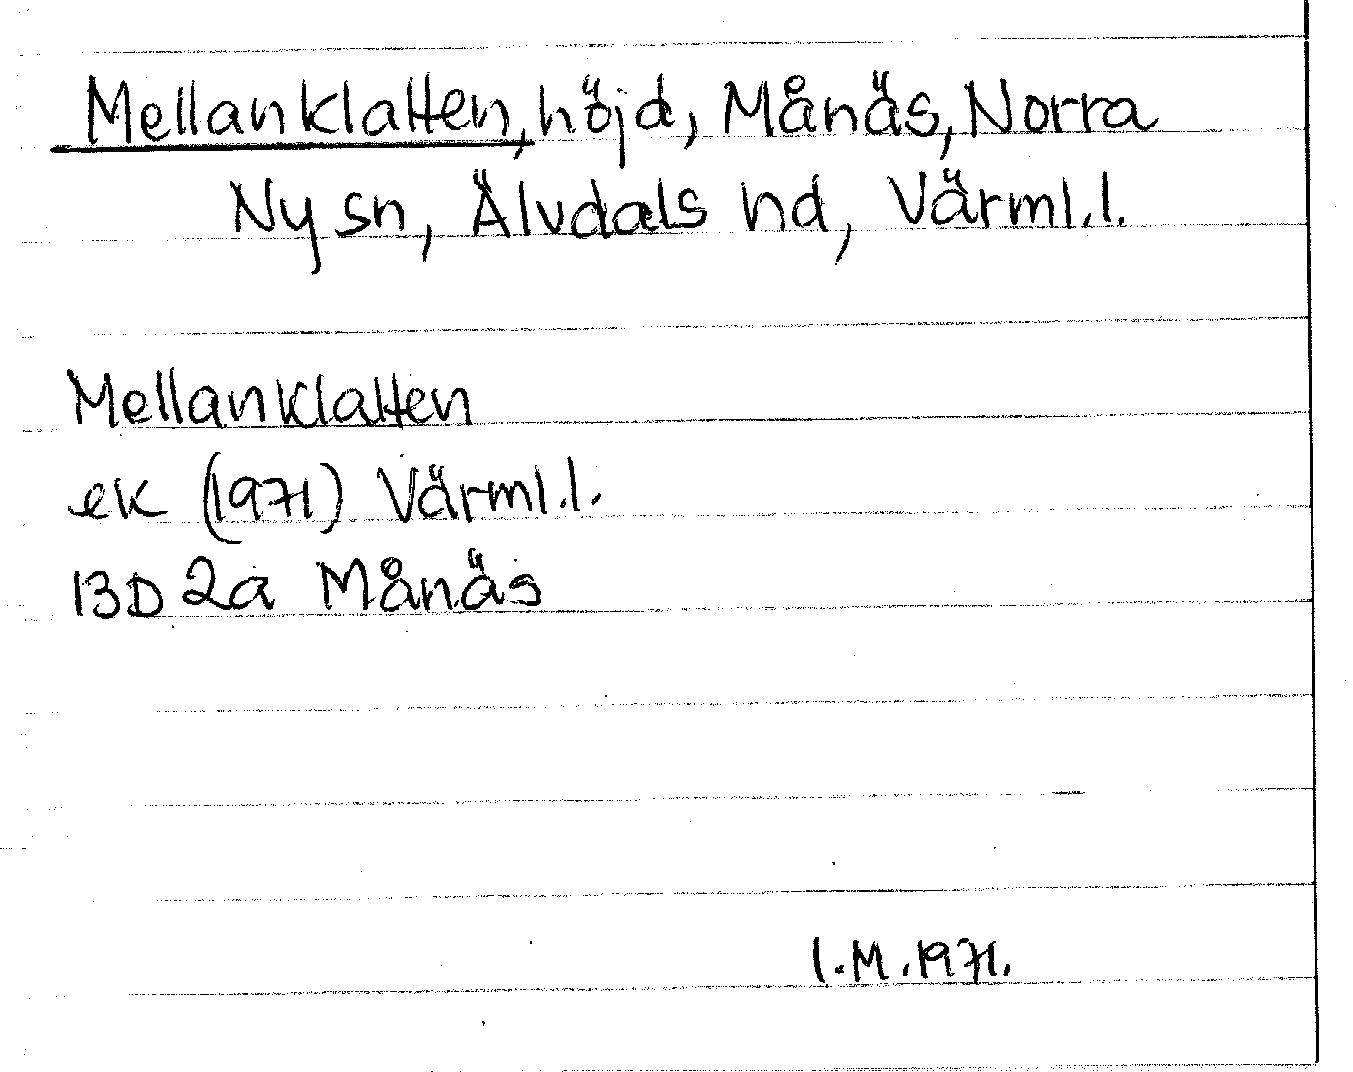 Mellanklatten, höjd, Månäs, Norra
Ny sn, Älvdals hd, Värml.l.
Mellanklatten
ek (1971) Värml.l.
13D 2a Månäs
I.M.1971.